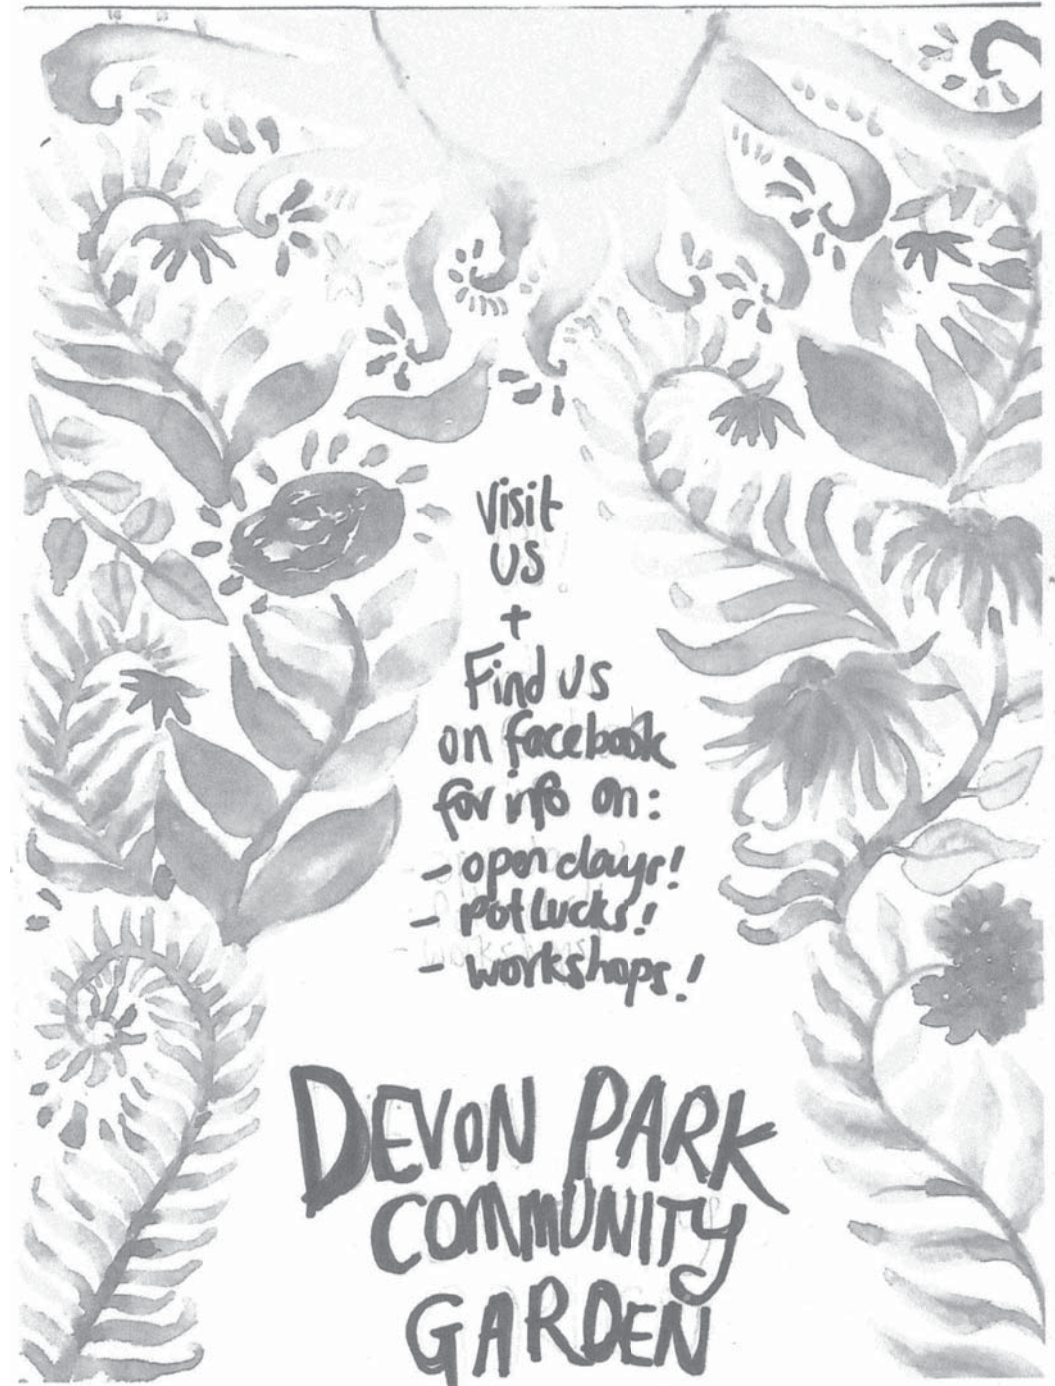 Visit
US
+
Find us
on facebook
for info on:
- open days!
- potlucks!
- workshops!
DEVON PARK
COMMUNITY
GARDEN